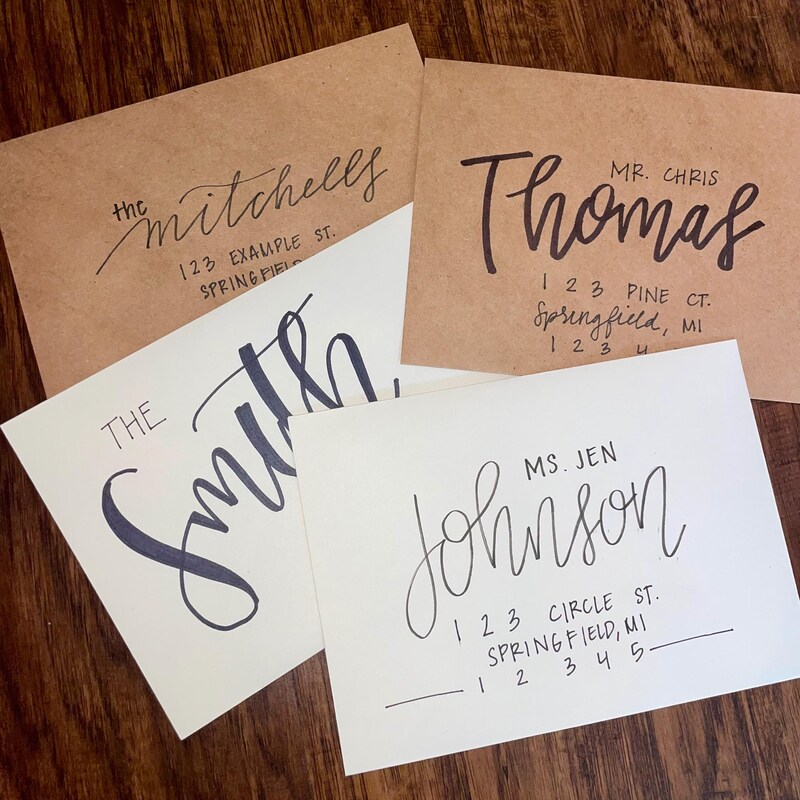 the mitchells
123 EXAMPLE ST.
SPRINGFIELD
MR. CHRIS
Thomas
123 PINE CT.
Springfield, MI
1234
THE
Smith
MS. JEN
Johnson
123 CIRCLE ST.
SPRINGFIELD, MI
12345